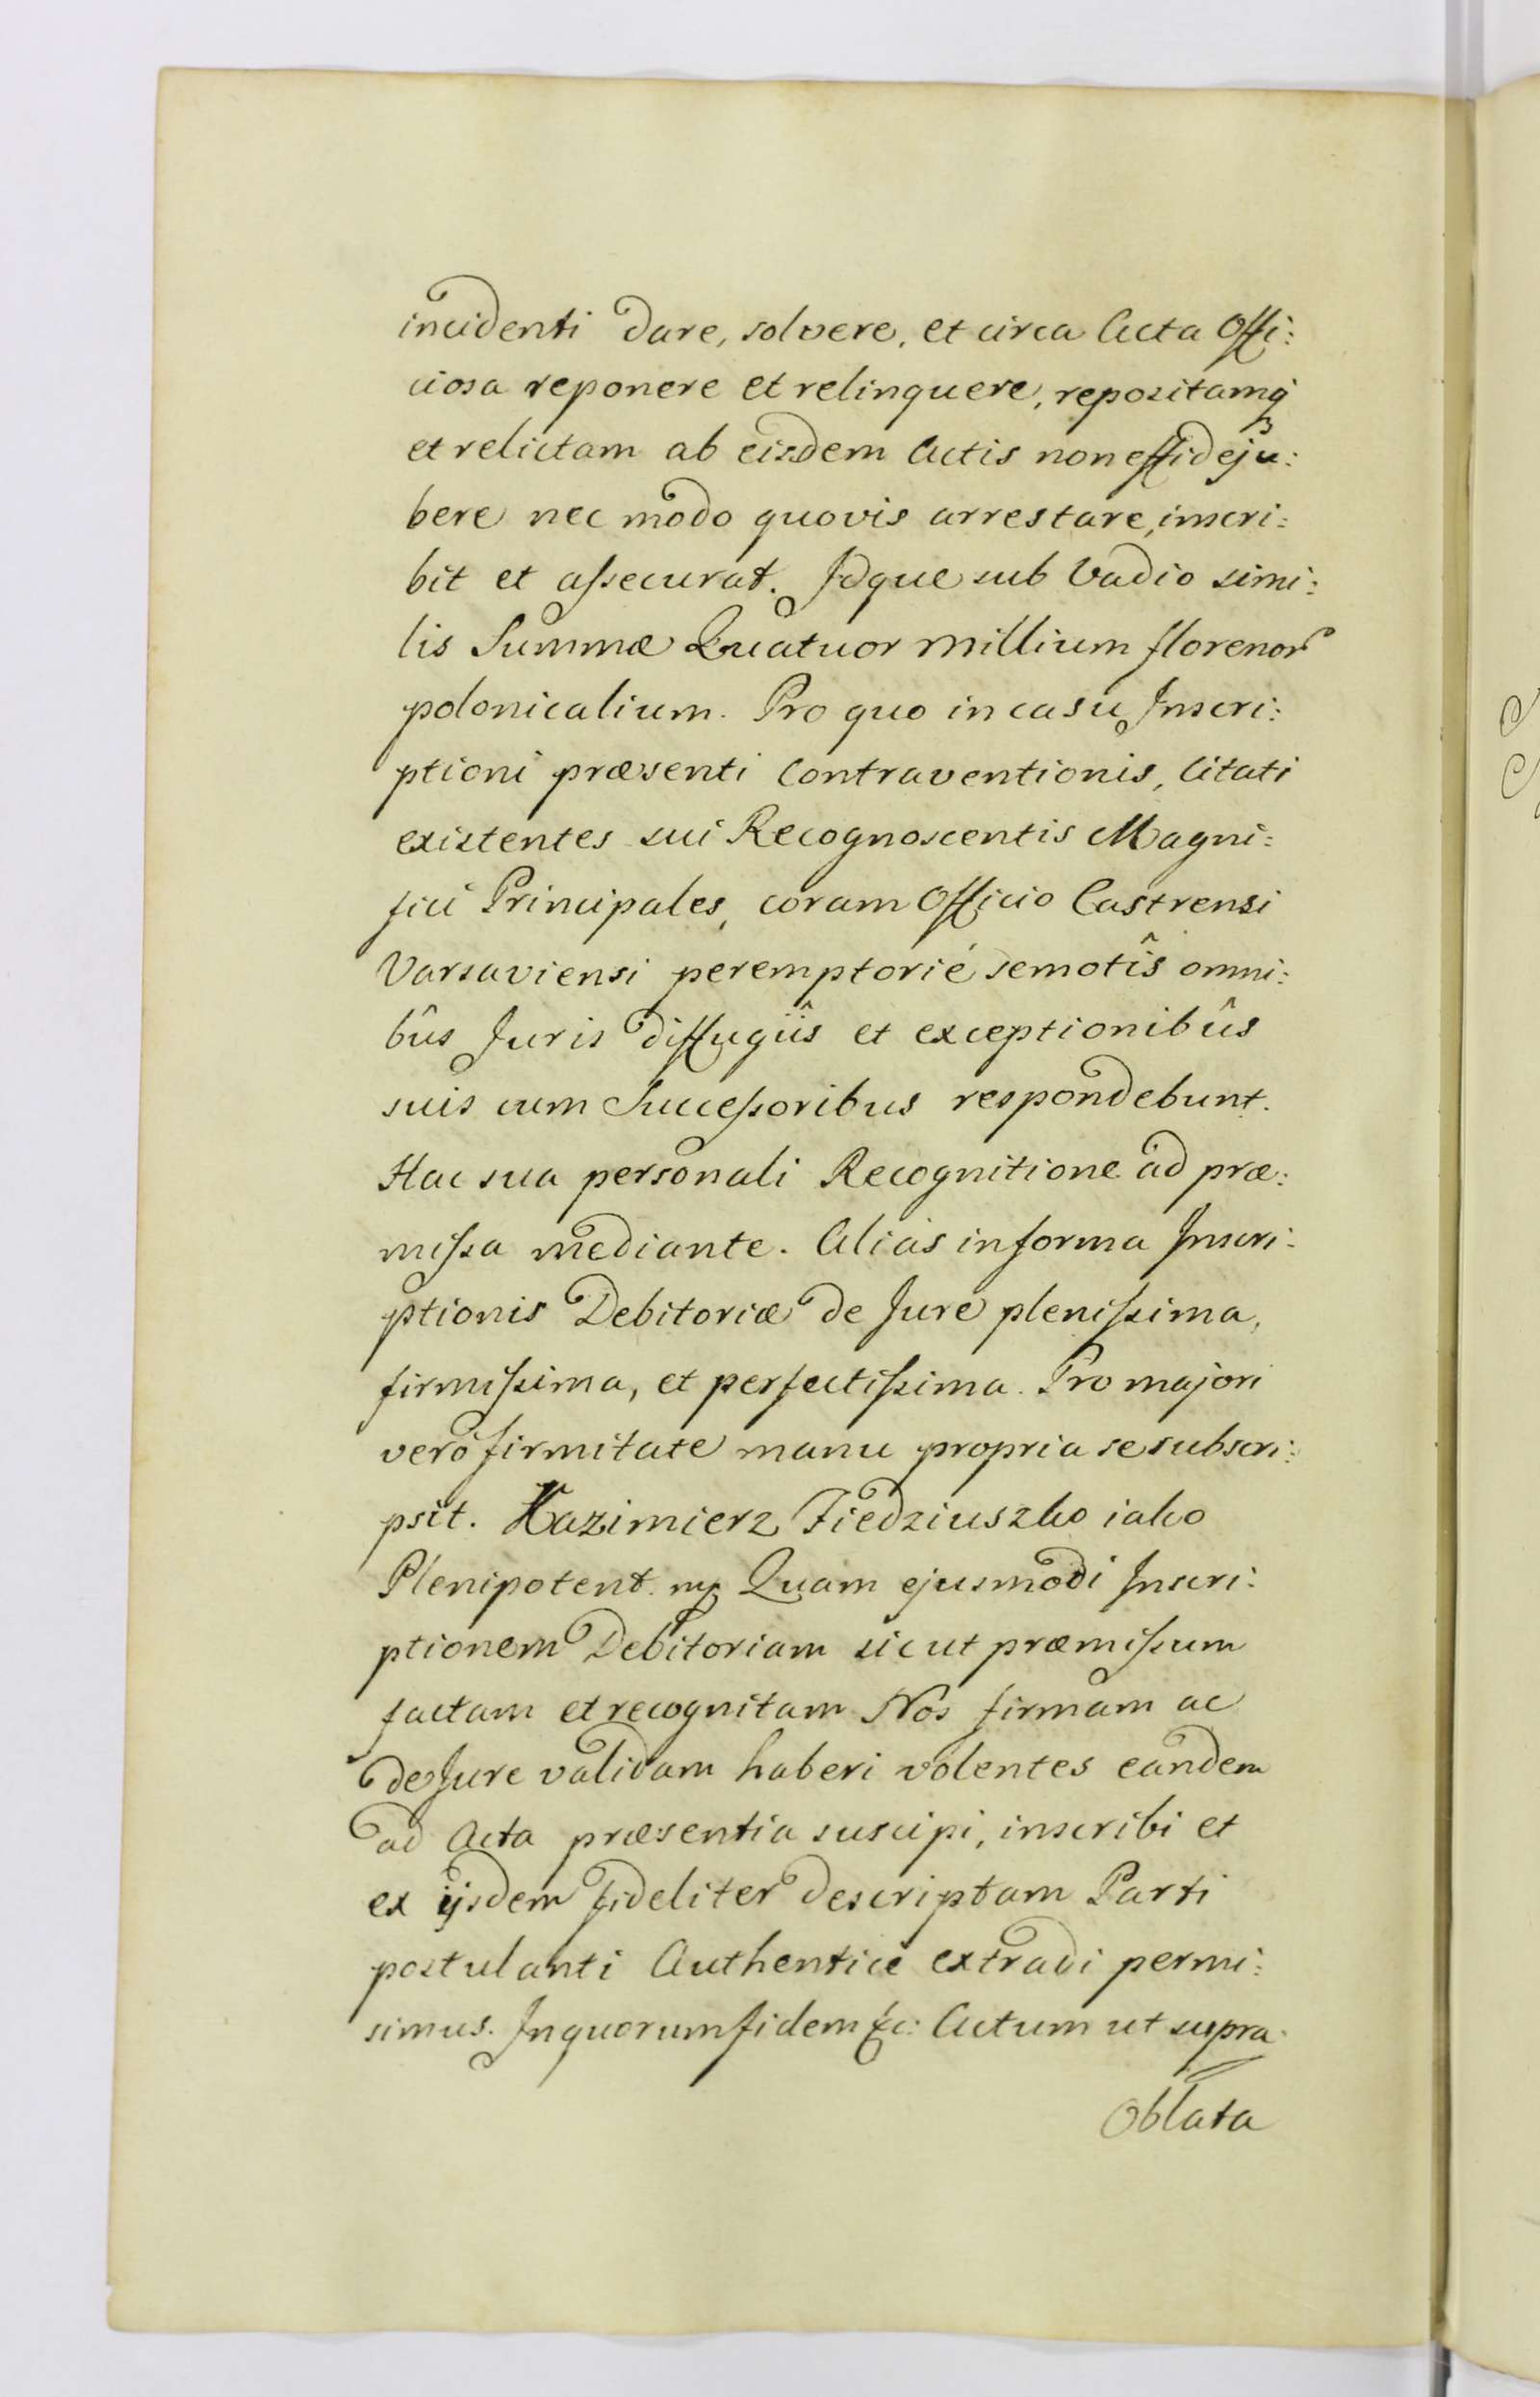 incidenti dare, solvere, et circa Acta Offi:
ciosa reponere et relinquere, repositamq;
et relictam ab eisdem Actis non effideju:
bere nec modo quovis arrestare, inscri:
bit et assecurat. Idque sub Vadio simi:
lis Summæ Quatuor millium florenor
polonicalium. Pro quo in casu Inscri:
ptioni præsenti Contraventionis, Citati
existentes sui Recognoscentis Magni:
fici Principales, coram Officio Castrensi
Varsaviensi peremptorié semotîs omni:
bûs Juris diffugiîs et exceptionibûs
suis cum Successoribus respondebunt.
Hac sua personali Recognitione ad præ:
missa mediante. Aliàs in forma Inscri:
ptionis Debitoriæ de Jure plenissima,
firmissima, et perfectissima. Pro majori
verò firmitate manu propria se subscri:
psit. Kazimierz Fiedziuszko iako
Plenipotent. mp Quam ejusmodi Inscri:
ptionem Debitoriam sicut præmissum
factam et recognitam Nos firmam ac
de Jure validam haberi volentes eandem
ad Acta præsentia suscipi, inscribi et
ex ijsdem fideliter descriptam Parti
postulanti Authentice extradi permi:
simus. In quorum fidem &c: Actum ut supra.
Oblata